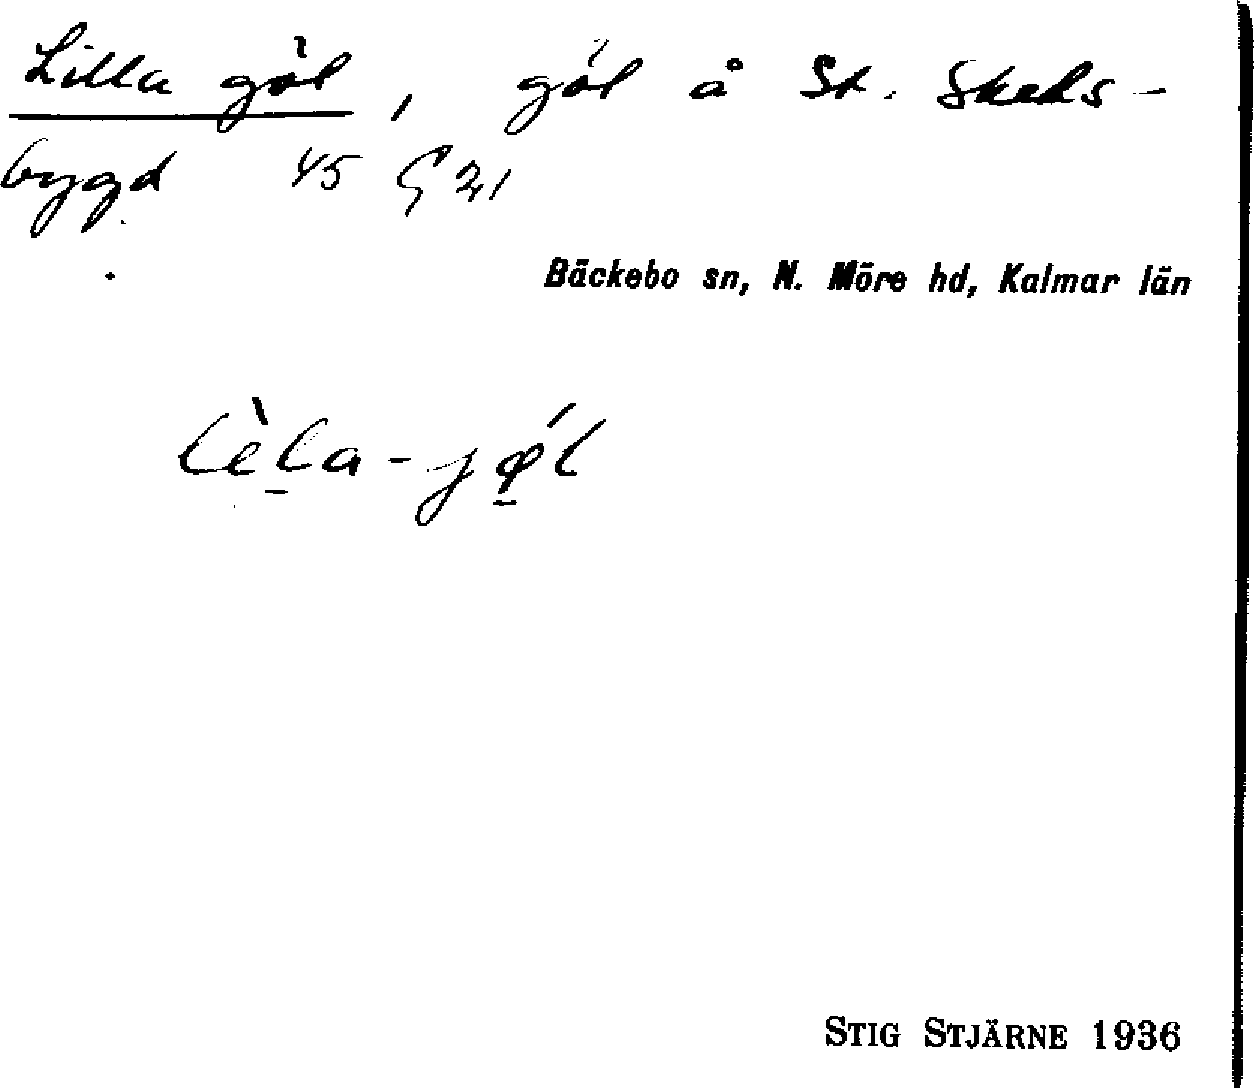 Lilla göl, göl å St. Skeks-
bygd 45 G 21
Bäckebo sn, N. Möre hd, Kalmar län
lèla-jǿl
STIG STJÄRNE 1936